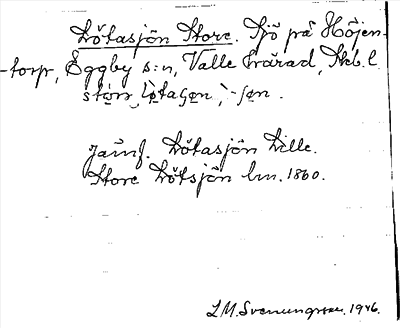 Lötasjön Store. Sjö på Höjen-
-torp, Eggby s:n, Valle härad, Skb. l.
Jämf. Lötasjön Lille.
Store Lötsjön lm. 1860.
L.M. Svenungsson. 1946.